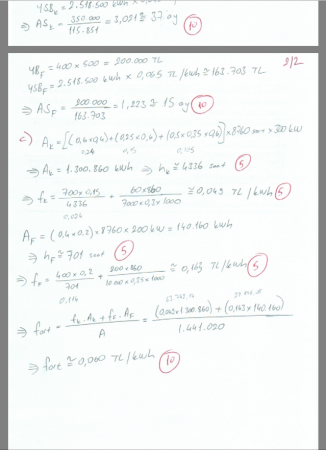 YSB_k = 2.518.500 kWh x 0,0
⇒ AS_k = 350.000 / 115.851 = 3,021 ≅ 37 ay (10)
YB_F = 400 x 500 = 200.000 TL 2/2
YSB_F = 2.518.500 kWh x 0,065 TL/kWh ≅ 163.703 TL
⇒ AS_F = 200.000 / 163.703 = 1,223 ≅ 15 ay (10)
c) A_k = [(0,6x0,4)+(0,35x0,4)+(0,5x0,35x0,6)] x 8760 saat x 300 kW
⇒ A_k = 1.300.860 kWh ⇒ h_k ≅ 4336 saat (5)
⇒ f_k = 700x0,15 / 4336 + 60x860 / 7000x0,3x1000 ≅ 0,049 TL/kWh (5)
0,024
A_F = (0,4x0,2) x 8760 x 200 kW = 140.160 kWh
⇒ h_F ≅ 701 saat (5)
⇒ f_F = 400x0,2 / 701 + 200x860 / 10.000x0,35x1000 ≅ 0,163 TL/kWh (5)
0,114
⇒ f_ort = f_k.A_k + f_F.A_F / A = (0,049x1.300.860) + (0,163x140.160) / 1.441.020
⇒ f_ort ≅ 0,060 TL/kWh (10)